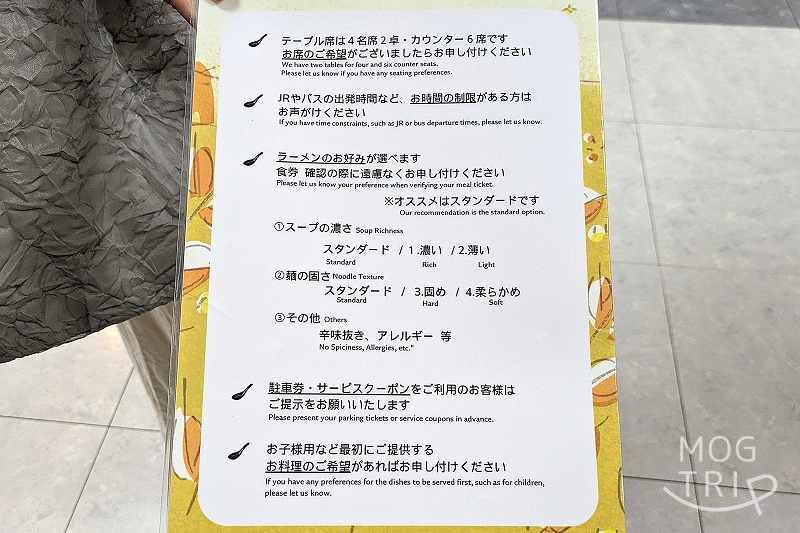 テーブル席は４名席２卓・カウンター６席です
お席のご希望がございましたらお申し付けください
We have two tables for four and six counter seats.
Please let us know if you have any seating preferences.
JRやバスの出発時間など、お時間の制限がある方は
お声がけください
If you have time constraints, such as JR or bus departure times, please let us know.
ラーメンのお好みが選べます
食券 確認の際に遠慮なくお申し付けください
Please let us know your preference when verifying your meal ticket.
※オススメはスタンダードです
Our recommendation is the standard option.
①スープの濃さ Soup Richness
スタンダード / 1.濃い / 2.薄い
Standard Rich Light
②麺の固さ Noodle Texture
スタンダード / 3.固め / 4.柔らかめ
Standard Hard Soft
③その他 Others
辛味抜き、アレルギー 等
No Spiciness, Allergies, etc."
駐車券・サービスクーポンをご利用のお客様は
ご提示をお願いいたします
Please present your parking tickets or service coupons in advance.
お子様用など最初にご提供する
お料理のご希望があればお申し付けください
If you have any preferences for the dishes to be served first, such as for children,
please let us know.
MOG
TRIP